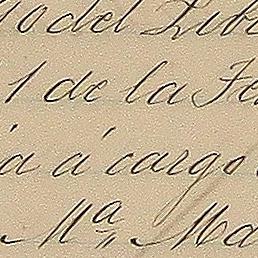 del Lib
1 de la Fe
a á cargo
Mª Ma